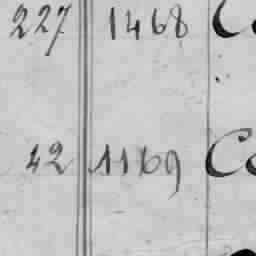 227 1468 C
42 1169 Co